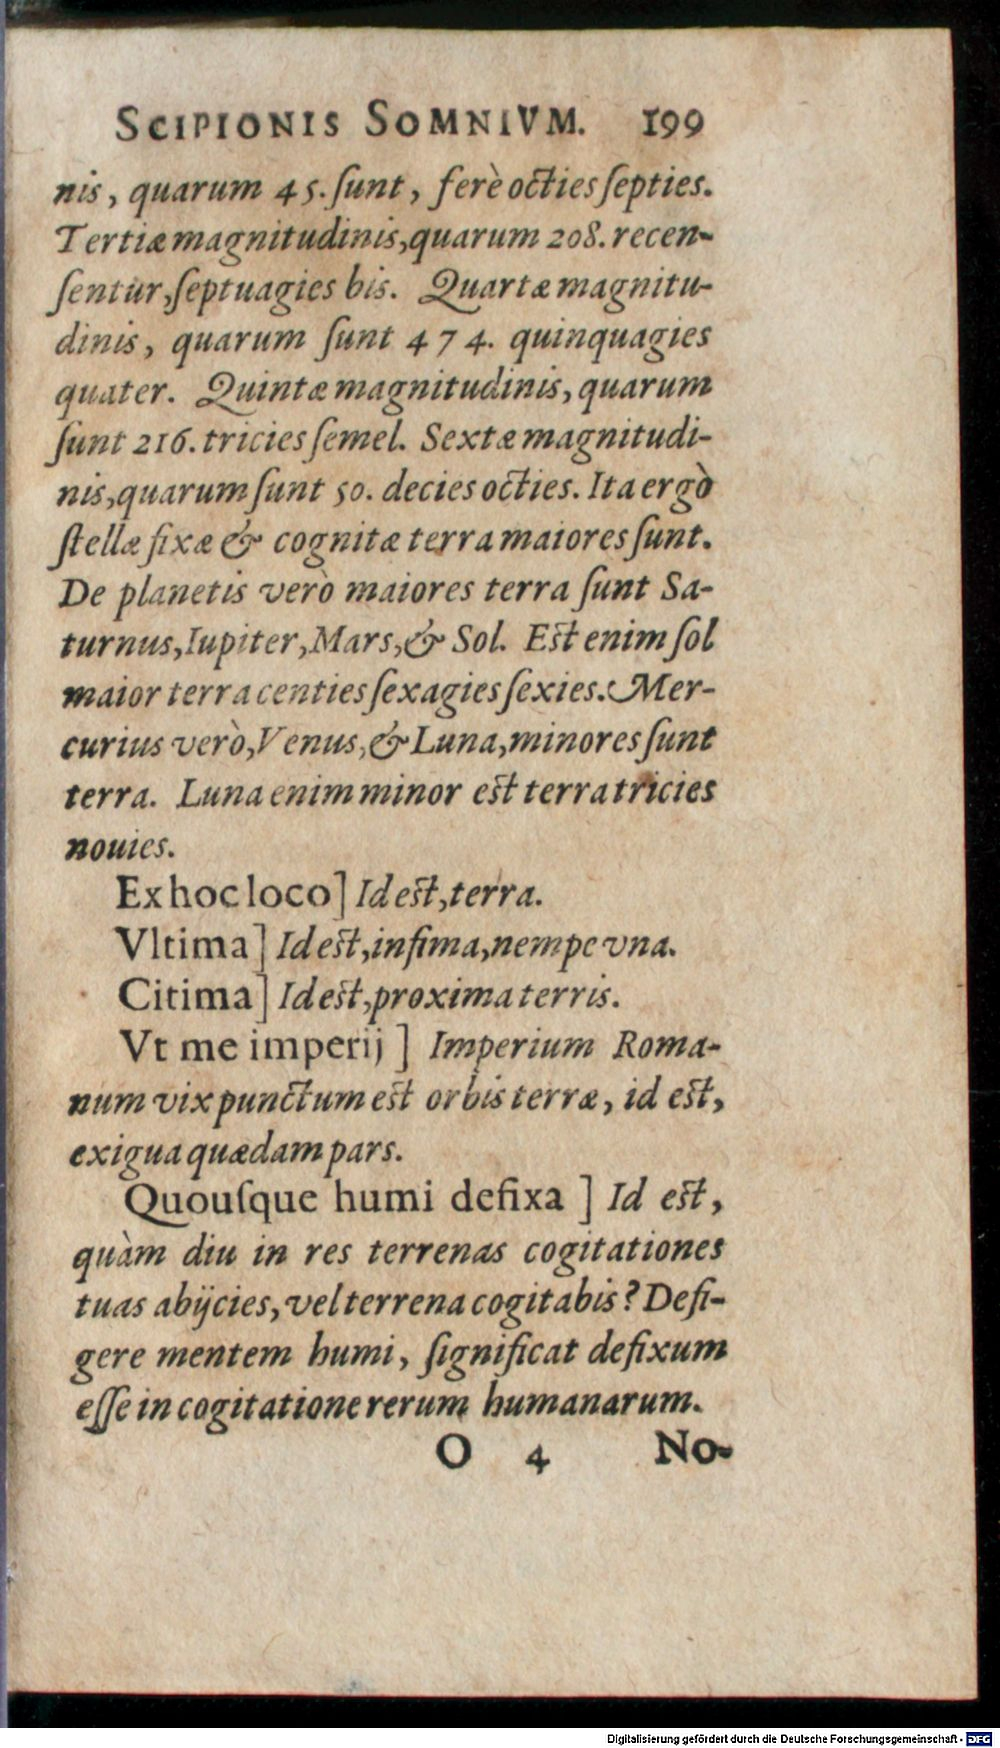 SCIPIONIS SOMNIVM. 199
nis, quarum 45. ſunt, ferè octies ſepties.
Tertiæ magnitudinis, quarum 208. recen-
ſentur, ſeptuagies bis. Quartæ magnitu-
dinis, quarum ſunt 474. quinquagies
quater. Quintæ magnitudinis, quarum
ſunt 216. tricies ſemel. Sextæ magnitudi-
nis, quarum ſunt 50. decies octies. Ita ergò
ſtellæ fixæ & cognitæ terra maiores ſunt.
De planetis verò maiores terra ſunt Sa-
turnus, Iupiter, Mars, & Sol. Eſt enim ſol
maior terra centies ſexagies ſexies. Mer-
curius verò, Venus, & Luna, minores ſunt
terra. Luna enim minor eſt terra tricies
nouies.
Ex hoc loco] Id eſt, terra.
Vltima] Id eſt, infima, nempe vna.
Citima] Id eſt, proxima terris.
Vt me imperij] Imperium Roma-
num vix punctum eſt orbis terræ, id eſt,
exigua quædam pars.
Quouſque humi defixa] Id eſt,
quàm diu in res terrenas cogitationes
tuas abijcies, vel terrena cogitabis? Defi-
gere mentem humi, ſignificat defixum
eſſe in cogitatione rerum humanarum.
O 4 No-
Digitalisierung gefördert durch die Deutsche Forschungsgemeinschaft - DFG